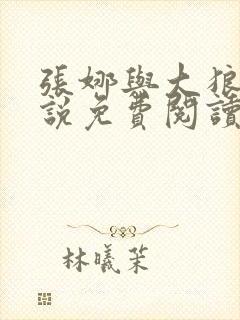 張娜與大狼
說免費閱讀
林曦茉